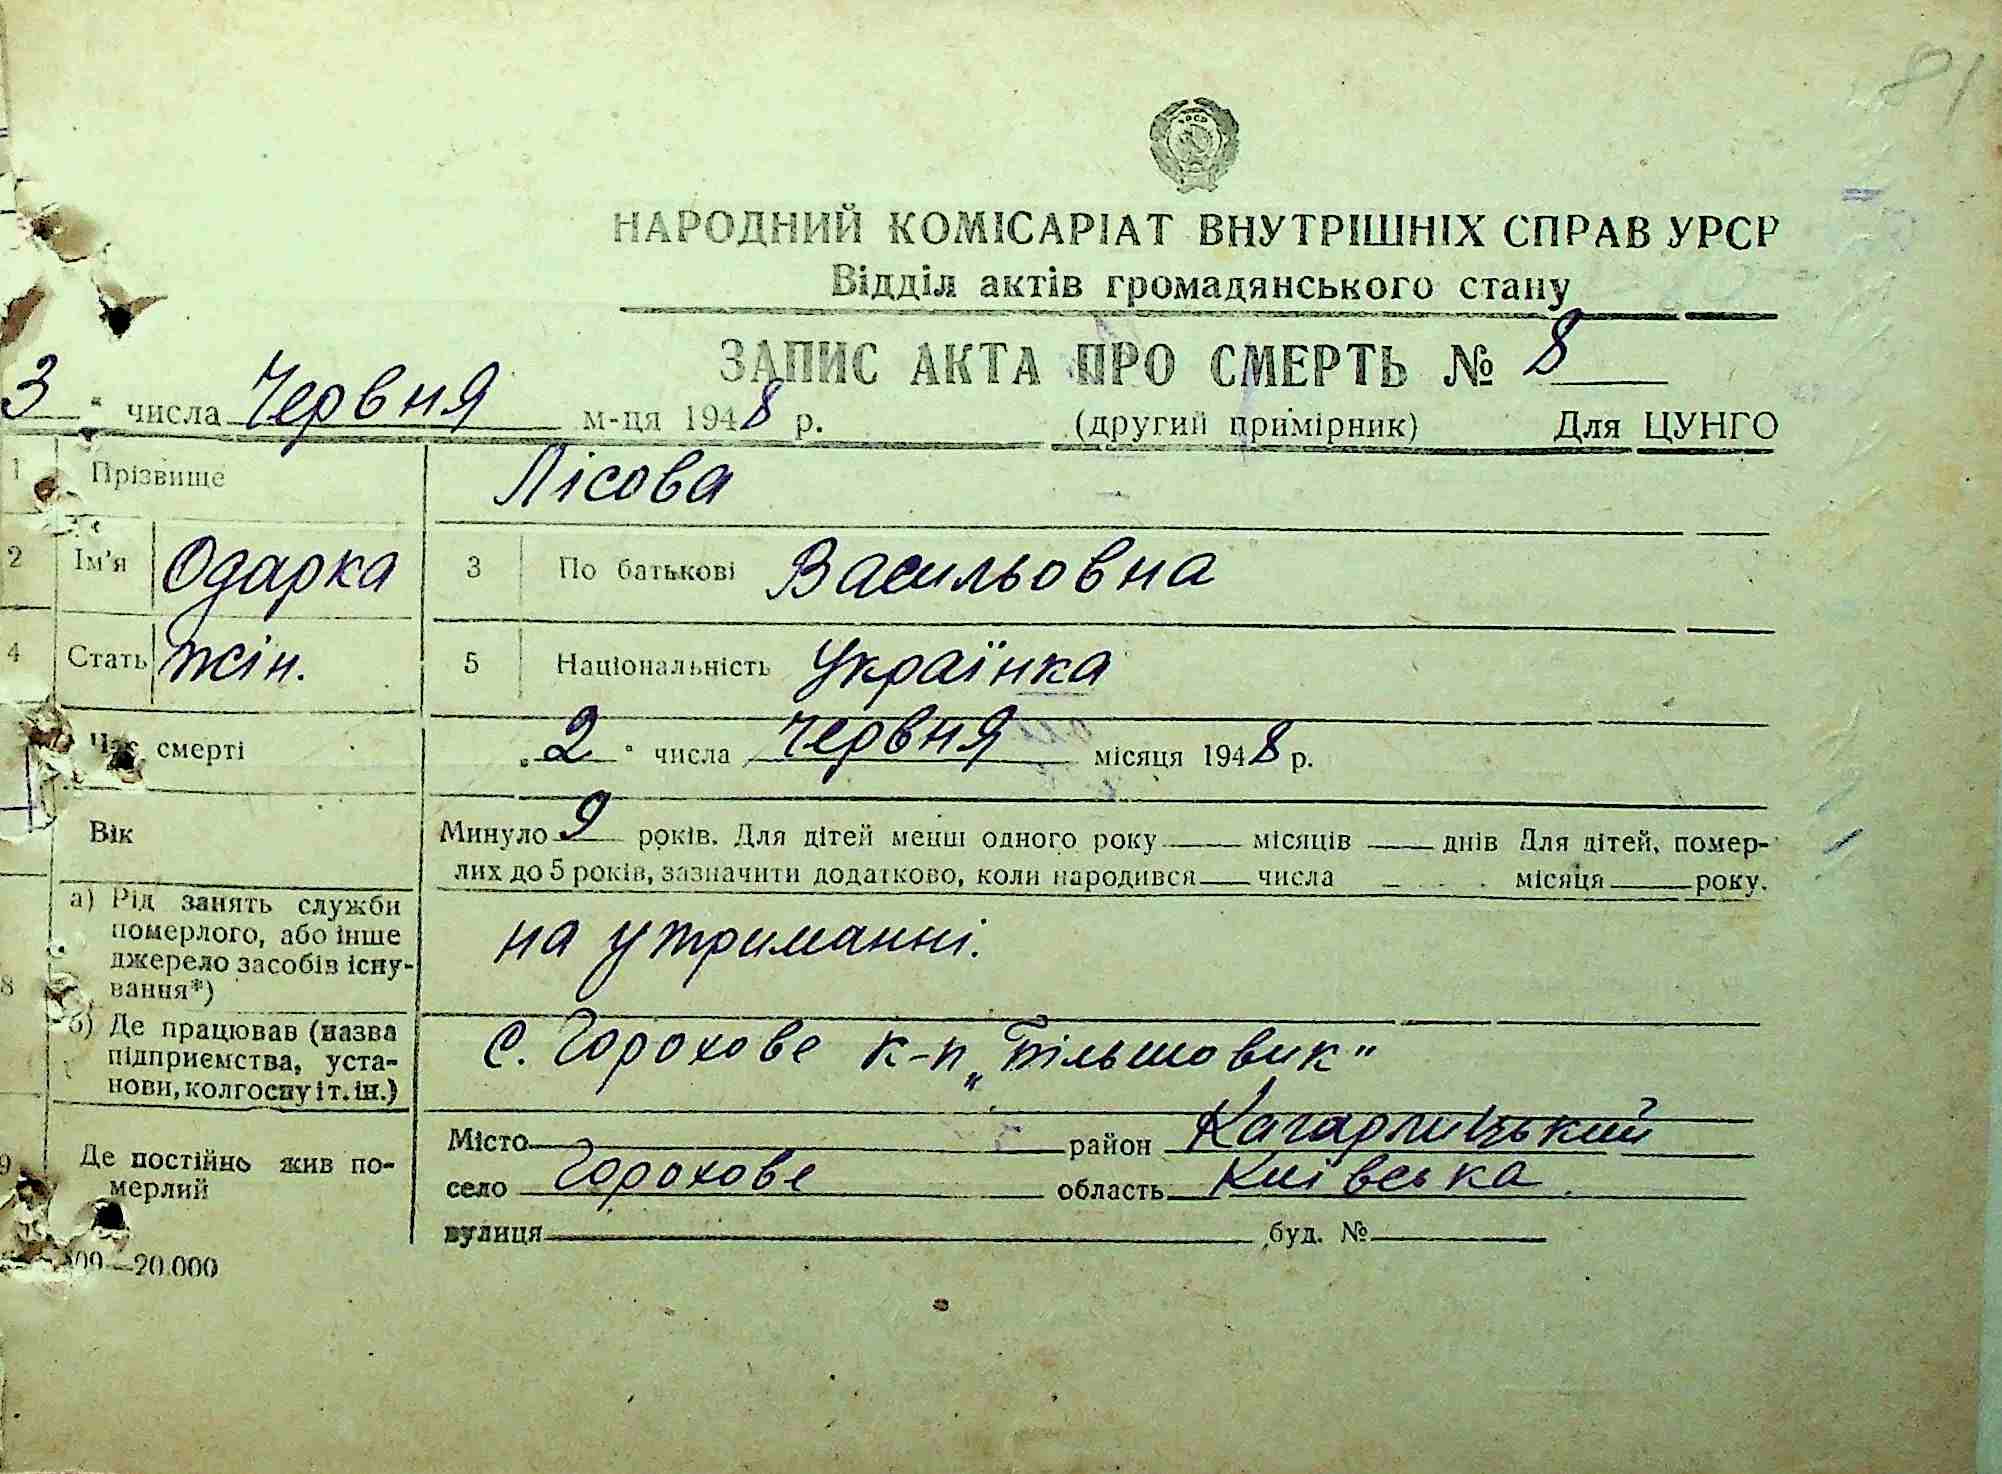 81
УРСР
НАРОДНИЙ КОМІСАРІАТ ВНУТРІШНІХ СПРАВ УРСР
Відділ актів громадянського стану
ЗАПИС АКТА ПРО СМЕРТЬ № 8
3 " числа Червня м-ця 1948 р. (другий примірник) Для ЦУНГО
1 Прізвище Лісова
2 Ім'я Одарка 3 По батькові Васильовна
4 Стать жін. 5 Національність Українка
Час смерті „2" числа Червня місяця 1948 р.
Вік Минуло 9 років. Для дітей менш одного року — місяців — днів Для дітей, помер-
лих до 5 років, зазначити додатково, коли народився — числа — місяця — року.
8 а) Рід занять служби
померлого, або інше
джерело засобів існу-
вання*) на утриманні.
б) Де працював (назва
підприємства, уста-
нови, колгоспу і т. ін.) с. Горохове к-п „Більшовик"
9 Де постійно жив по-
мерлий
Місто район Кагарлицький
село Горохове область Київська.
вулиця буд. №
09—20.000